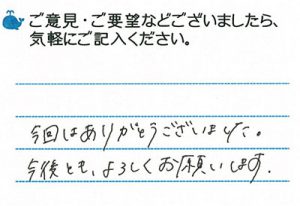 ご意見・ご要望などございましたら、
気軽にご記入ください。
今回はありがとうございました。
今後とも、よろしくお願いします.